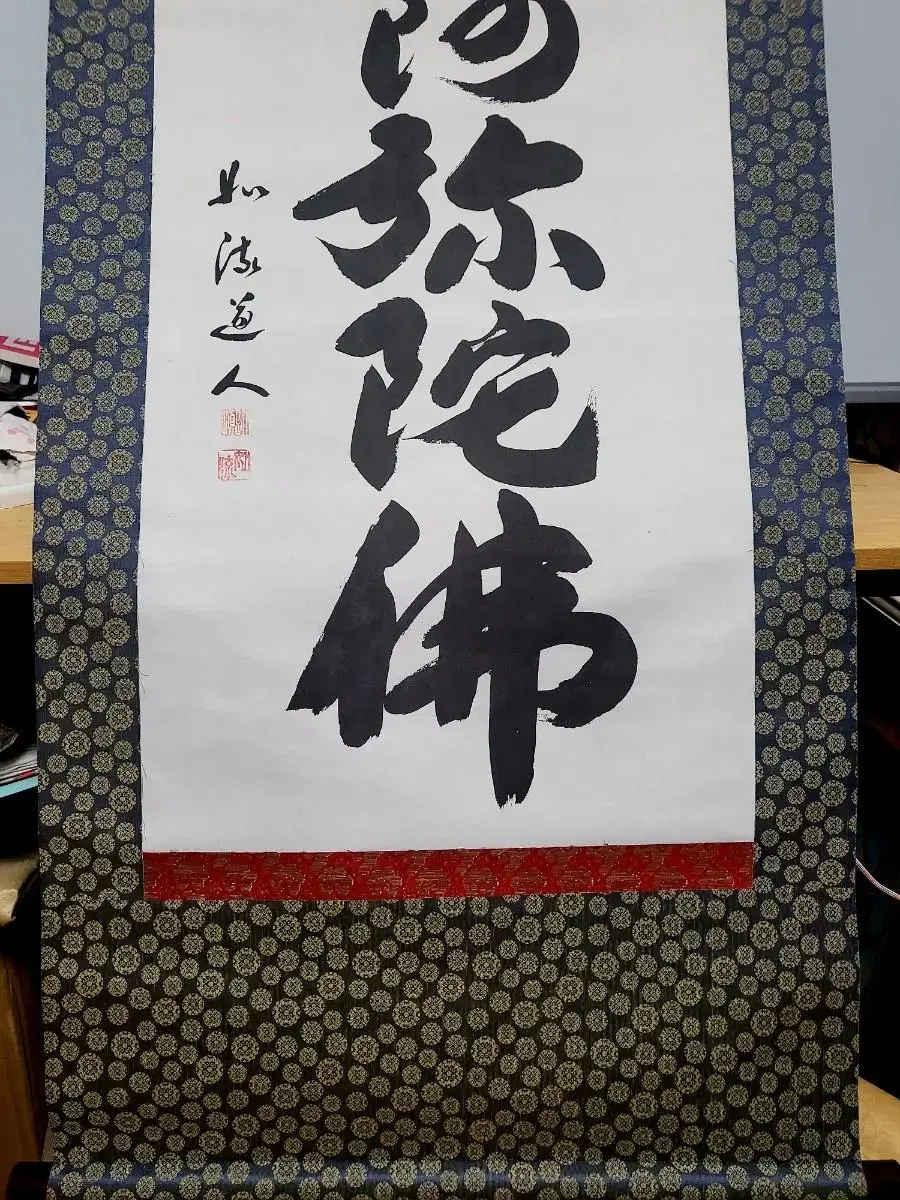 阿弥陀佛
如流道人